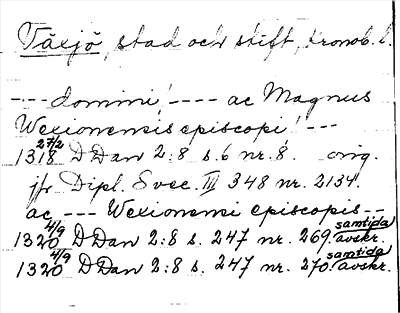 Växjö, stad och stift, Kronob. l.
--- domini! ---- ac Magnus
Wexionensis episcopi! ---
1318 27/2 DDan 2:8 s. 6 nr. 8. orig.
jfr Dipl. Svec. III 348 nr. 2134.
ac --- Wexionensi episcopis --
1320 4/9 DDan 2:8 s. 247 nr. 269. samtida avskr.
1320 4/9 DDan 2:8 s. 247 nr. 270. samtida avskr.